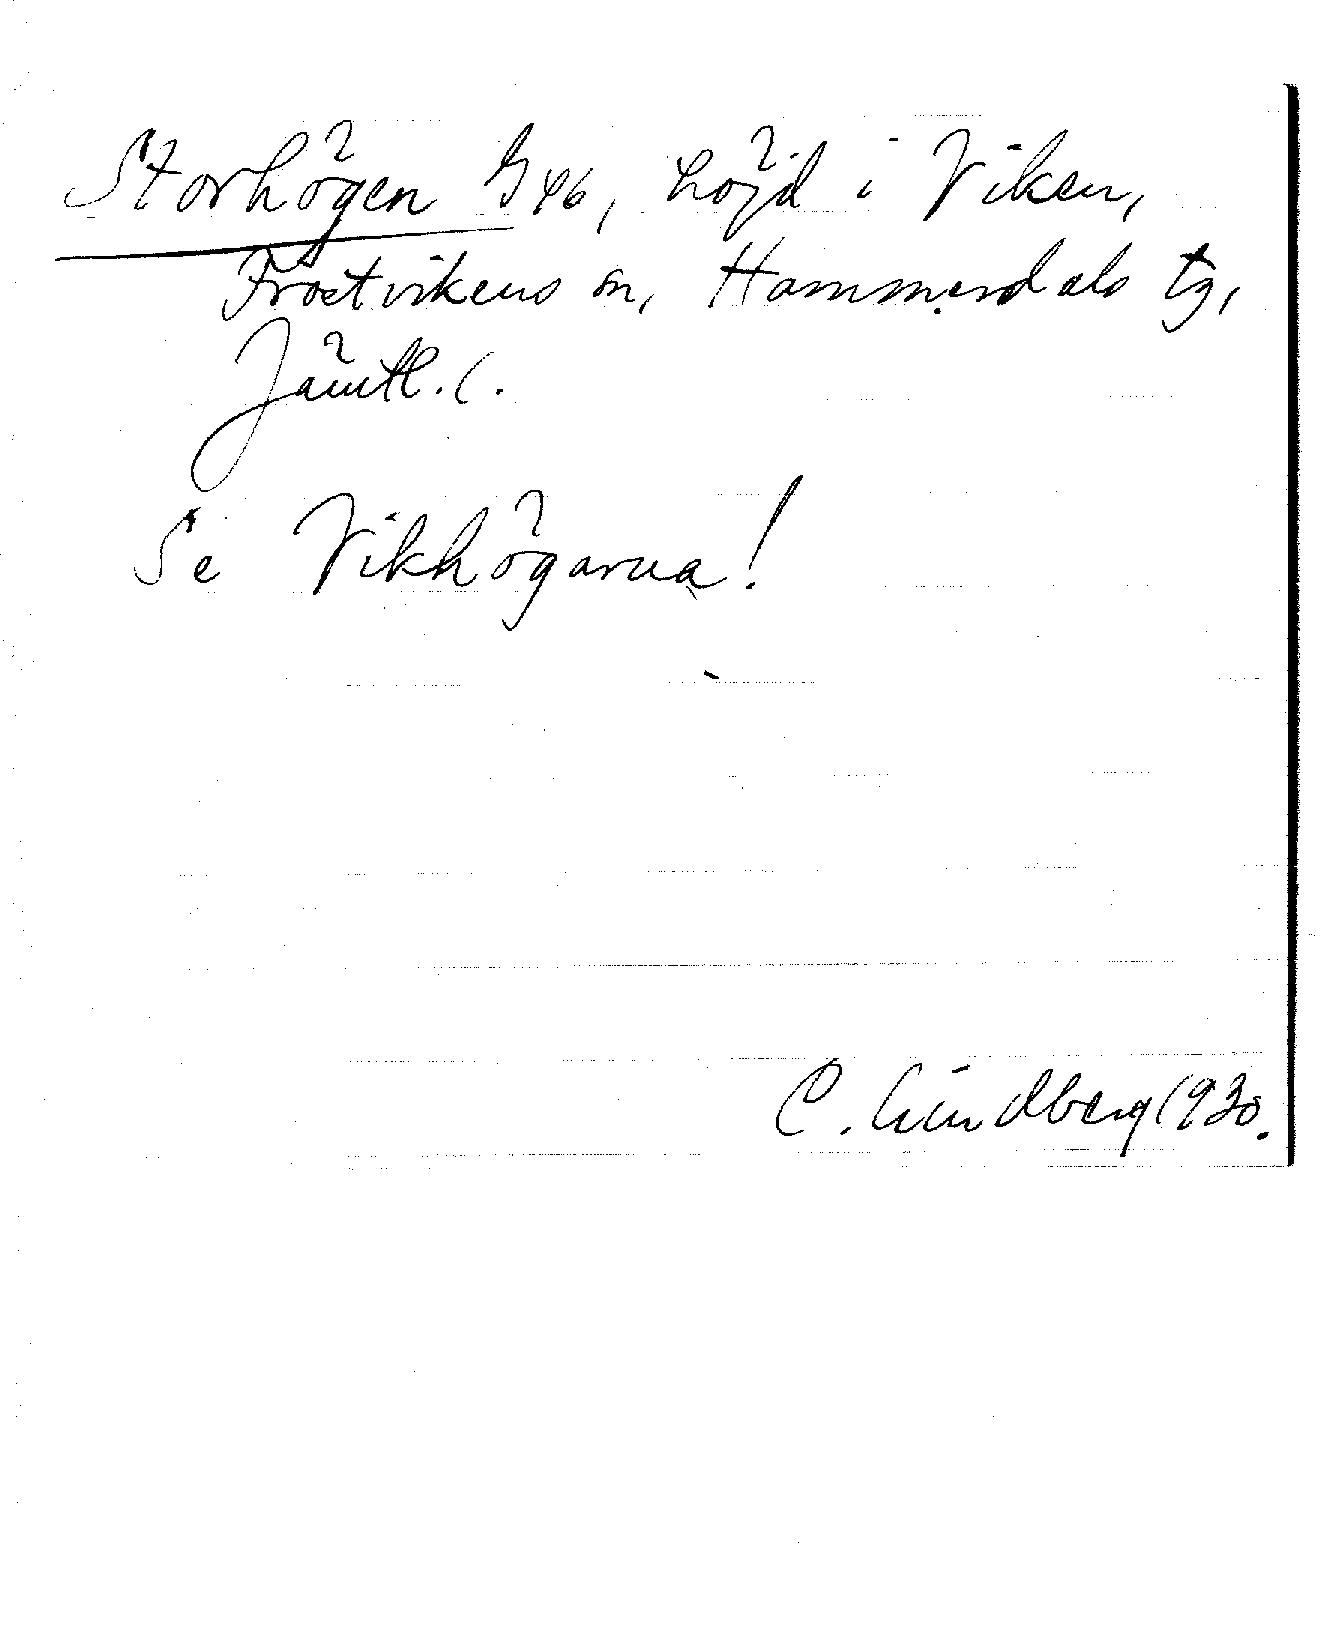 Storhögen G46, höjd i Viken,
Frostvikens sn, Hammerdals tg,
Jämtl. l.
Se Vikhögarna!
C. Lindberg 1930.